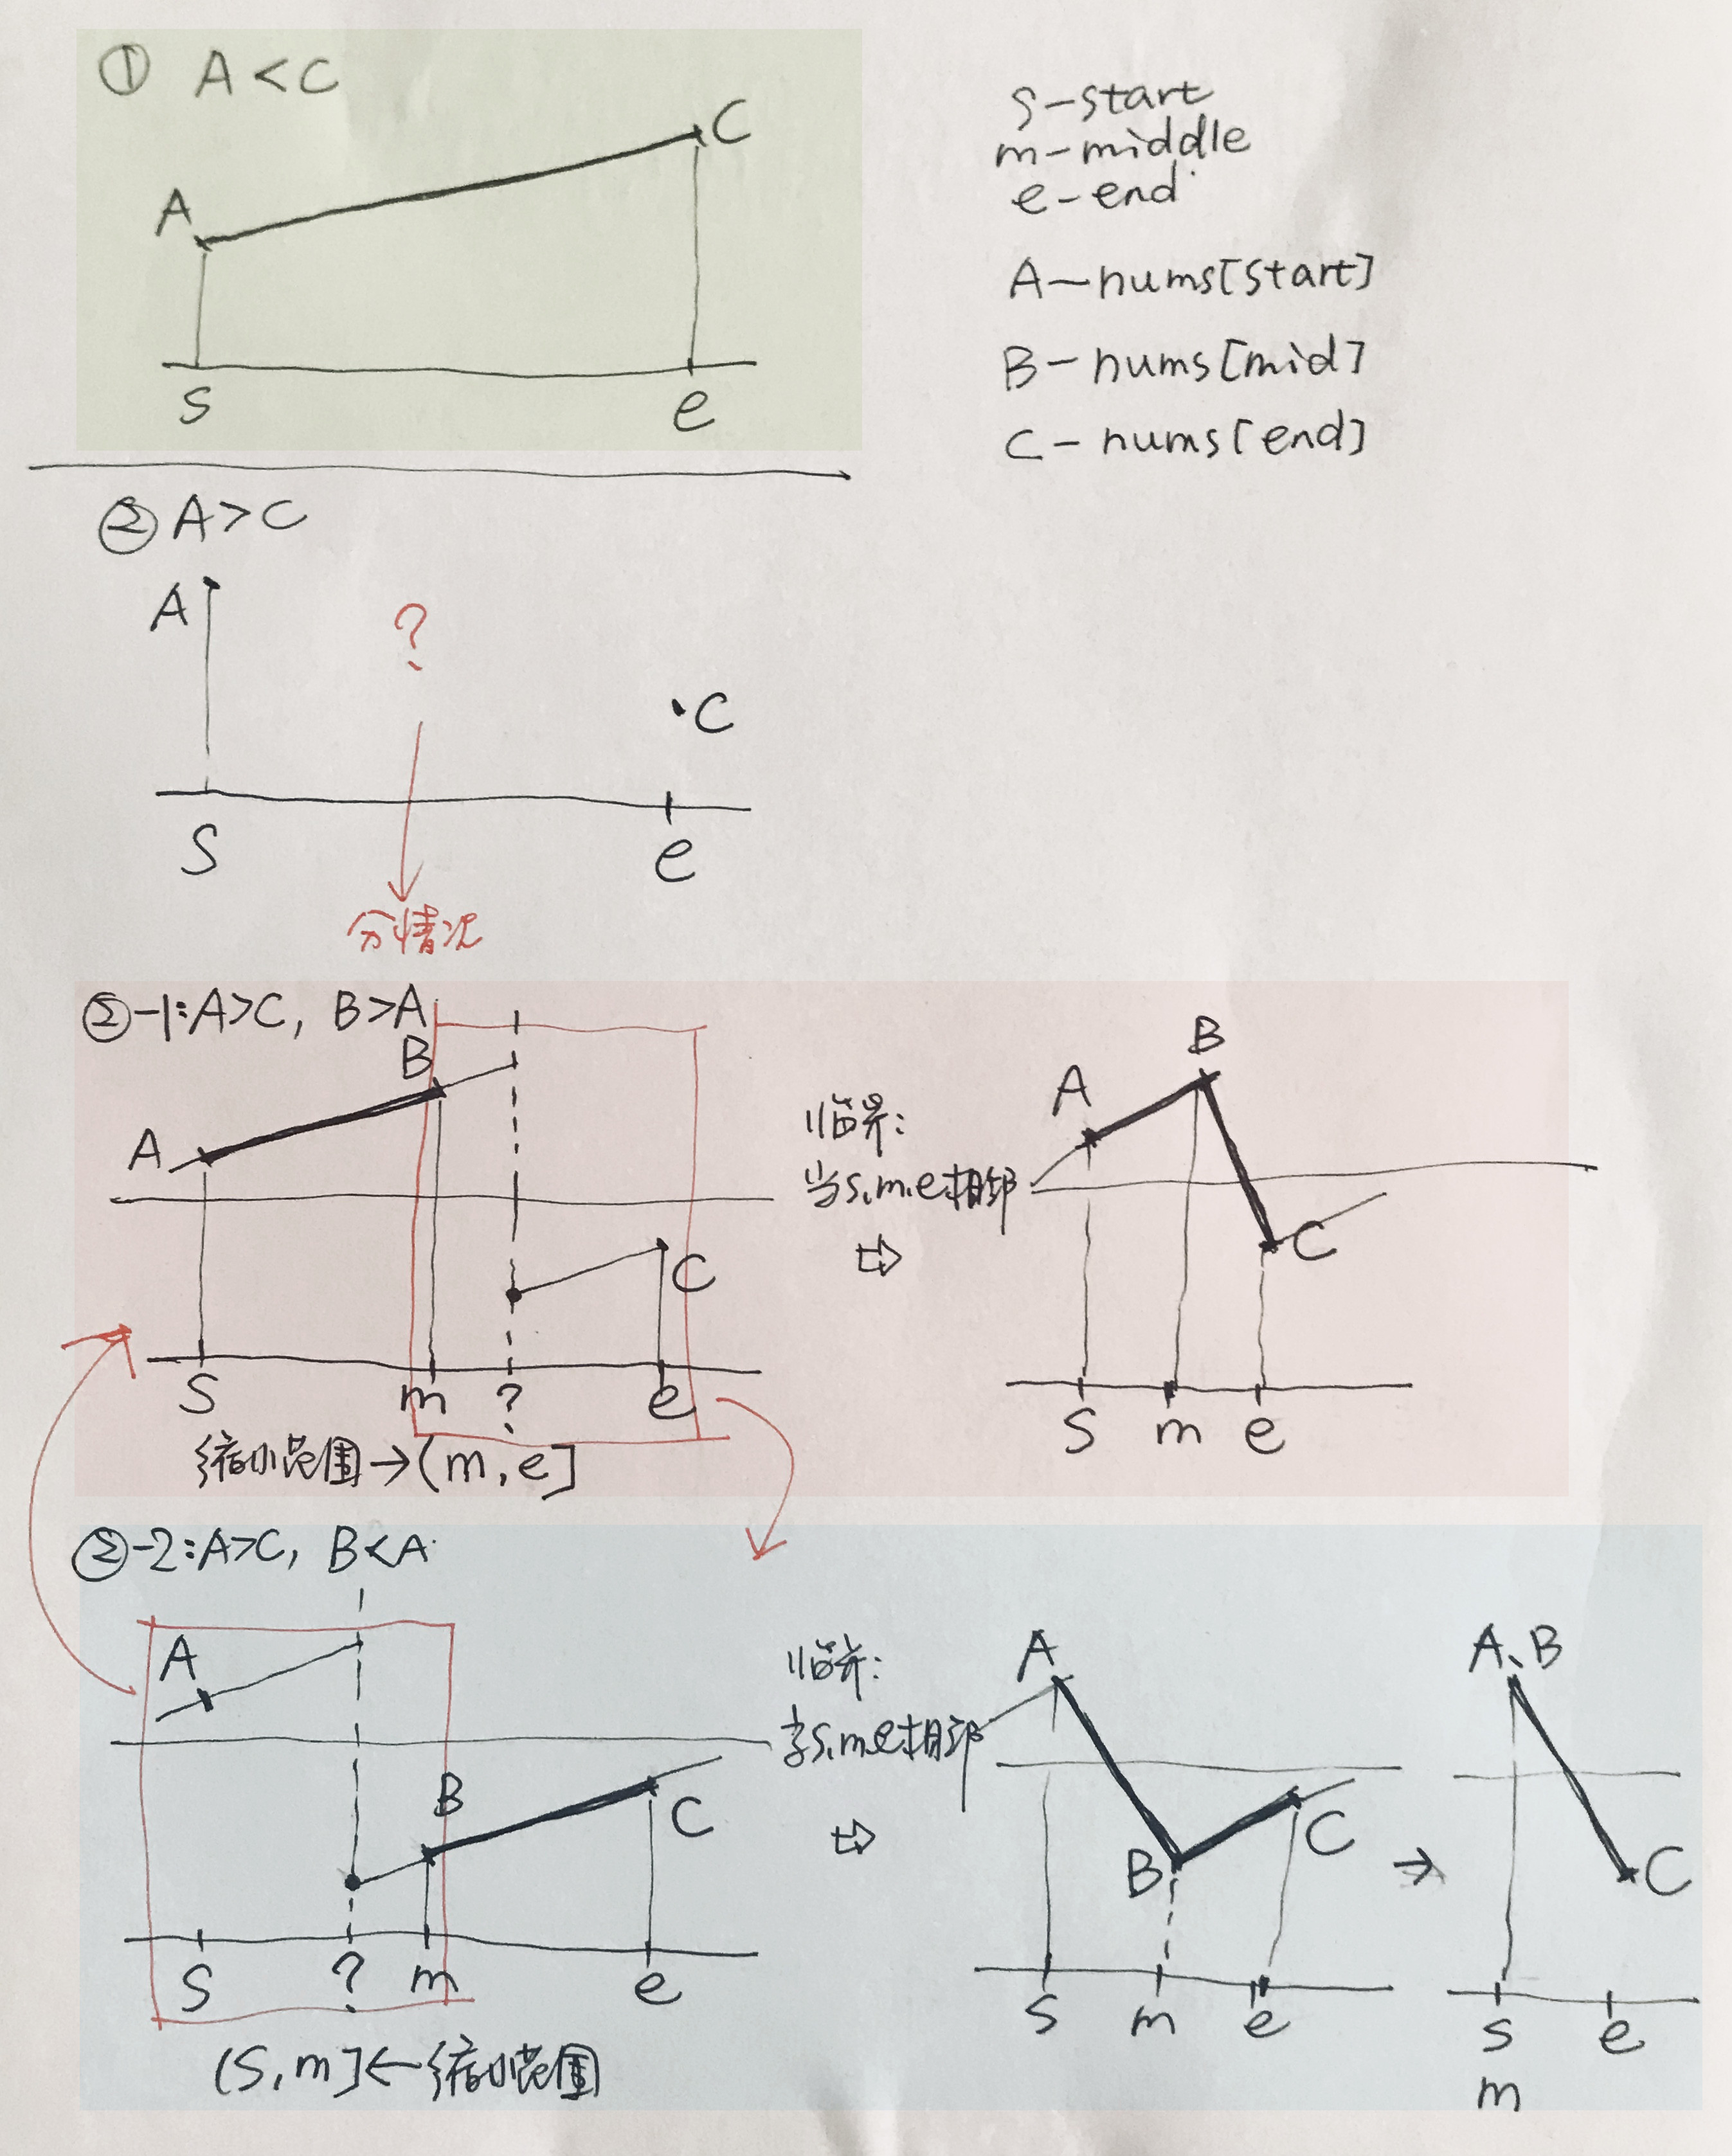 ① A<C
C
A
s
e
s-start
m-middle
e-end
A-nums[start]
B-nums[mid]
C-nums[end]
② A>C
A
?
C
S
e
分情况
②-1:A>C, B>A
B
A
C
S
m
?
e
缩小范围→(m,e]
临界:
当s,m,e相邻
⇨
A
B
C
S
m
e
②-2:A>C, B<A
A
B
C
S
?
m
e
(S,m]←缩小范围
临界:
当s,m,e相邻
⇨
A
B
C
s
m
e
→
A、B
C
s
e
m